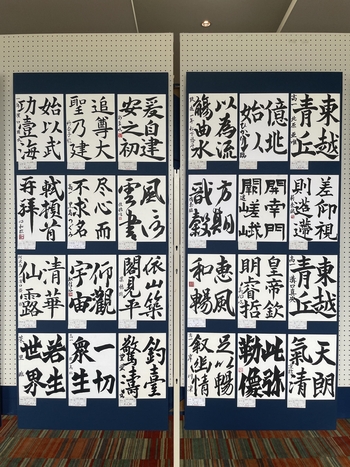 東越
青丘
億兆
始以
以為流
觴曲水
差仰視
開幸門
方期
戩穀
東越
青丘
皇帝欽
明睿哲
恵風
和暢
天朗
氣清
此弥
勒像
足以暢
叙幽情
爰自建
安之初
追尊大
聖乃建
始以武
功壹海
風信
雲書
尽心而
不求名
軾頓首
再拜
依山築
閣見平
仰觀
宇宙
清華
仙露
釣臺
驚濤
一切
衆生
若生
世界